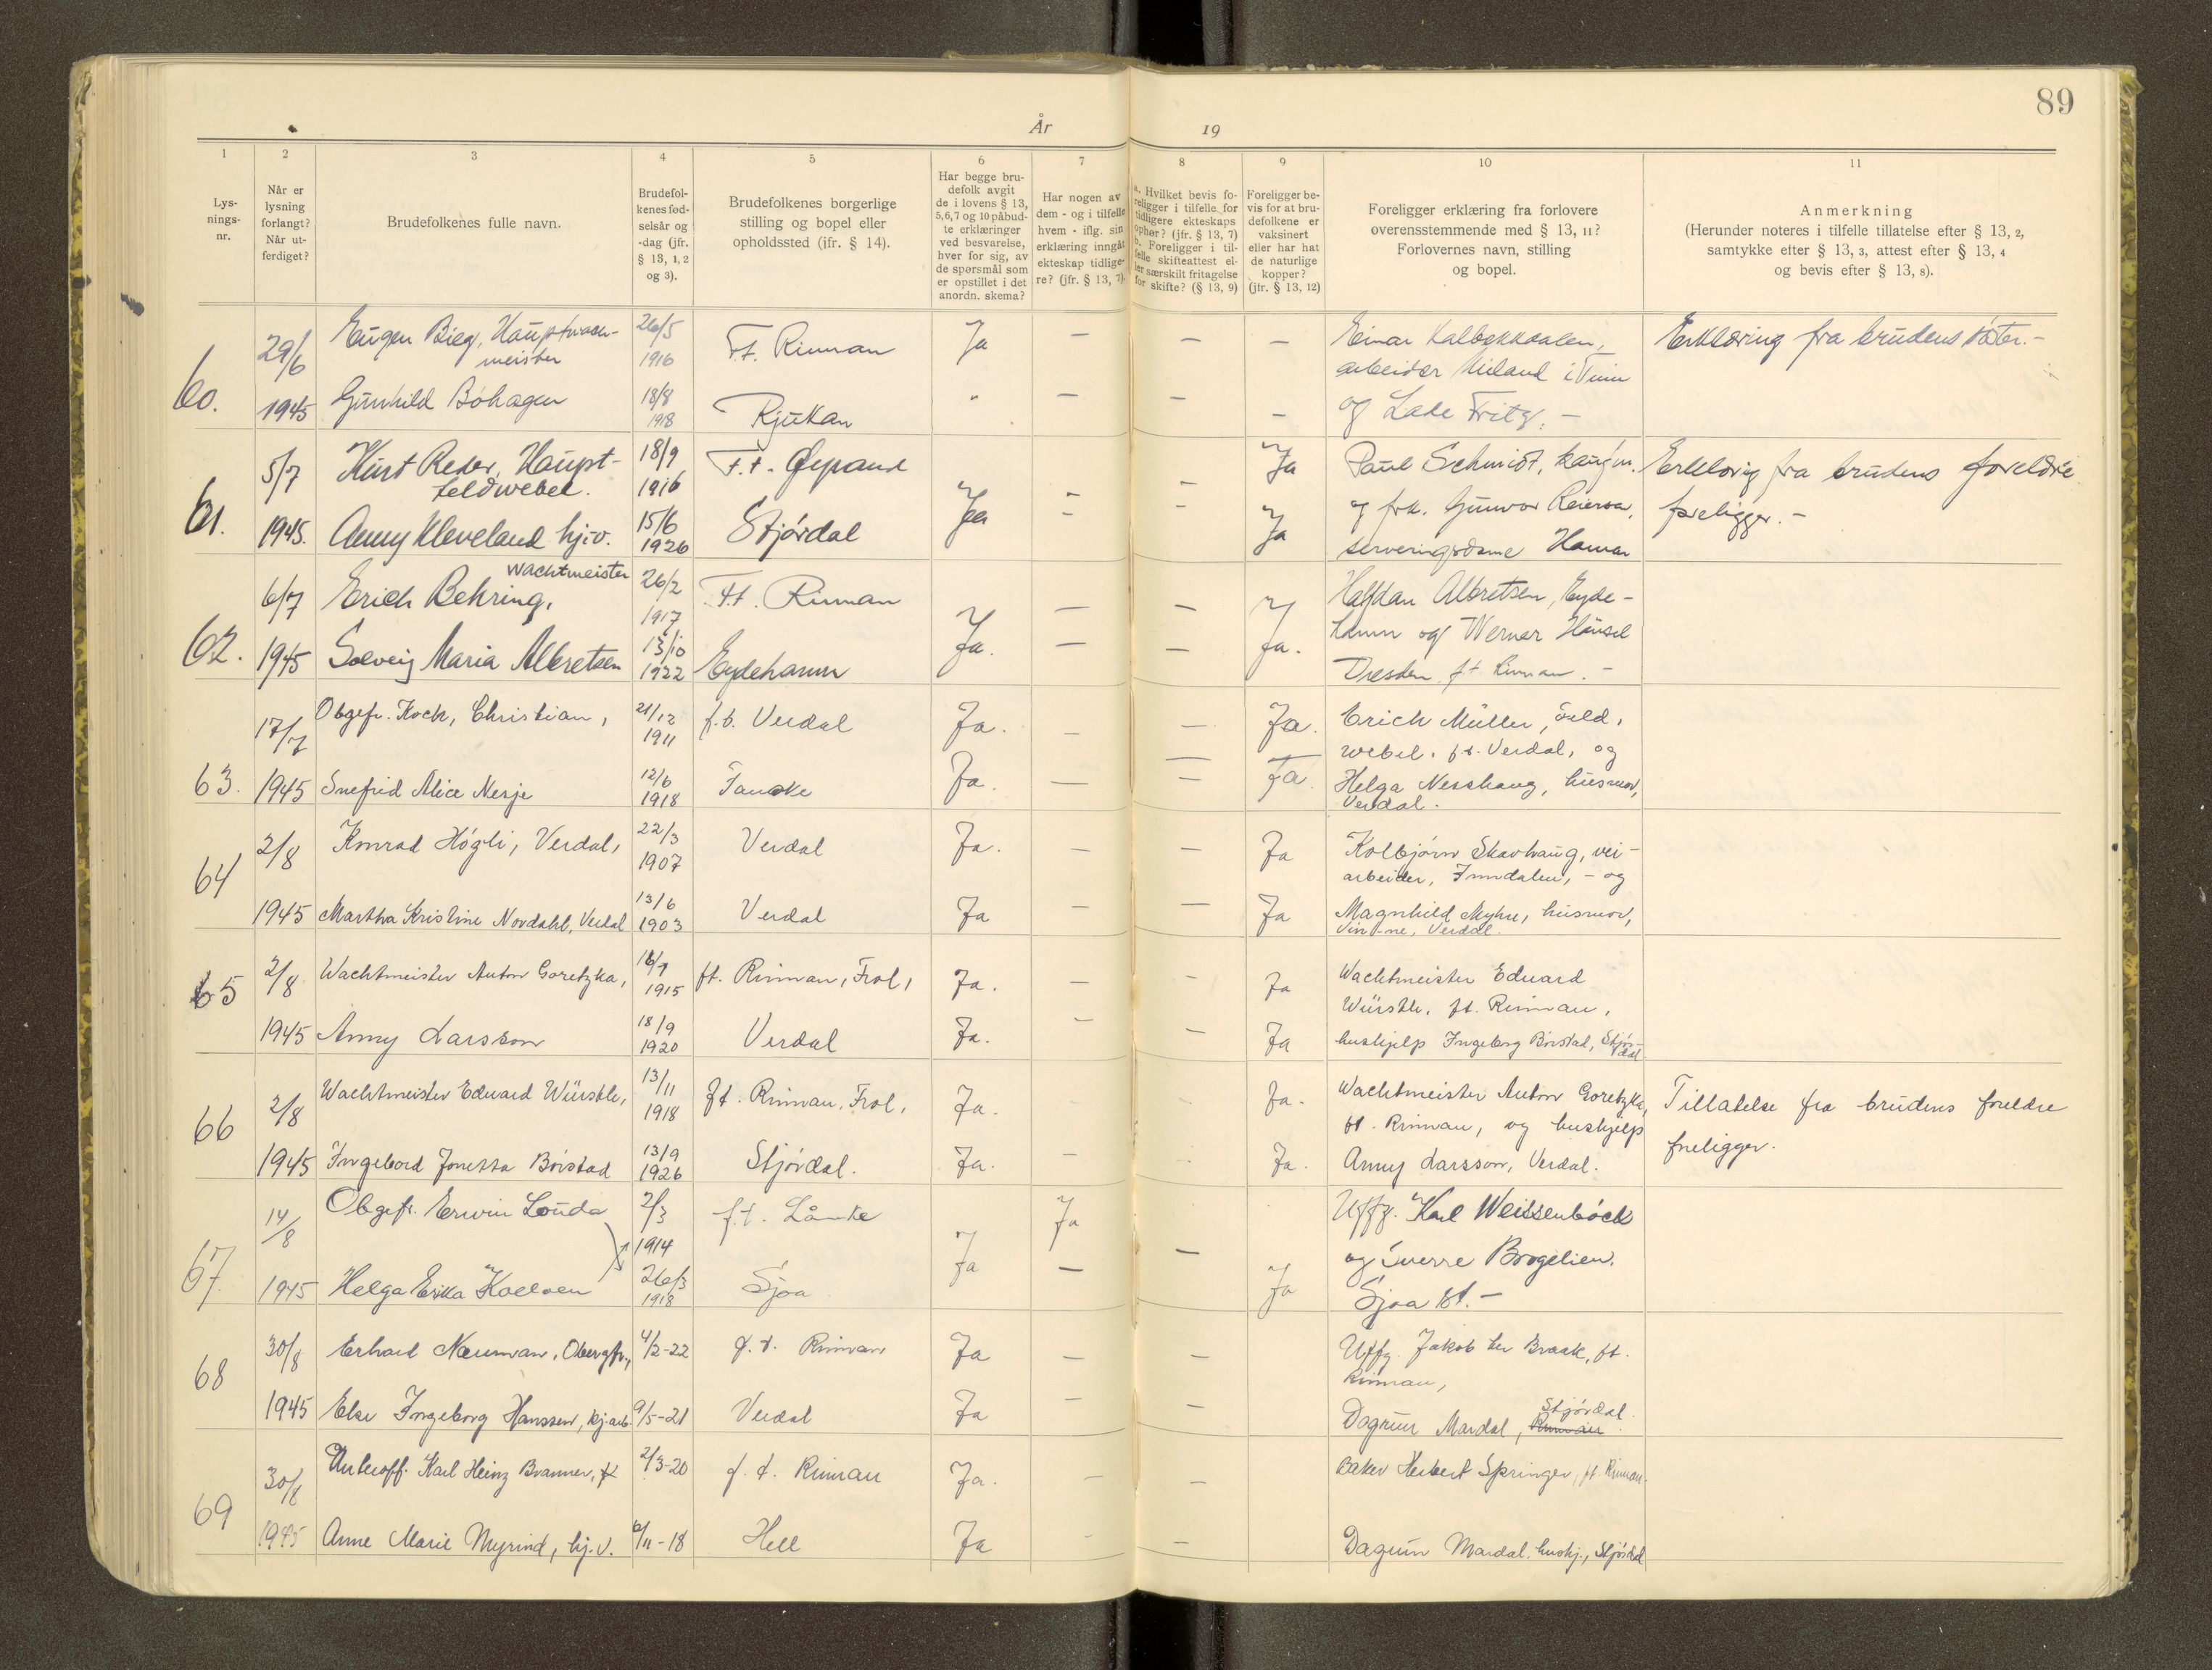 89
År 19
1 2 3 4 5 6 7 8 9 10 11
Lys-
nings-
nr.
Når er
lysning
forlangt?
Når ut-
ferdiget?
Brudefolkenes fulle navn.
Brudefol-
kenes fød-
selsår og
-dag (jfr.
§ 13, 1, 2
og 3).
Brudefolkenes borgerlige
stilling og bopel eller
opholdssted (jfr. § 14).
Har begge bru-
defolk avgit
de i lovens § 13,
5,6,7 og 10 påbud-
te erklæringer
ved besvarelse,
hver for sig, av
de spørsmål som
er opstillet i det
anordn. skema?
Har nogen av
dem - og i tilfelle
hvem - iflg. sin
erklæring inngåt
ekteskap tidlige-
re? (jfr. § 13, 7).
a. Hvilket bevis fo-
religger i tilfelle for
tidligere ekteskaps
ophør? (jfr. § 13, 7)
b. Foreligger i til-
felle skifteattest el-
ler særskilt fritagelse
for skifte? (§ 13, 9)
Foreligger be-
vis for at bru-
defolkene er
vaksinert
eller har hat
de naturlige
kopper?
(jfr. § 13, 12)
Foreligger erklæring fra forlovere
overensstemmende med § 13, 11?
Forlovernes navn, stilling
og bopel.
Anmerkning
(Herunder noteres i tilfelle tillatelse efter § 13, 2,
samtykke efter § 13, 3, attest efter § 13, 4
og bevis efter § 13, 8).
60.
29/6
1945
Eugen Bieg, Hauptwach-
meister
26/5
1916
Ft. Rinnan
Ja
—
—
—
Gunhild Bøhagen
18/8
1918
Rjukan
"
—
—
—
Einar Kalbekkdalen,
arbeider Miland i Tinn
og Lade Fritz. —
Erklæring fra brudens fater. -
61.
5/7
1945.
Kurt Reder, Haupt-
feldwebel.
18/9
1916
F.t. Øysand
Anny Kleveland hj.v.
15/6
1926
Stjørdal
Ja
Ja
Ja
Paul Schmidt,
og frk. Gunvor
serveringsdame Hamar
Erklæring fra brudens foreldre
foreligger. -
62.
6/7
1945
Wachtmeister
Erich Behring,
26/2
1917
F.t. Rinnan
Solveig Maria Albretsen
13/10
1922
Eydehavn
Ja.
—
—
Ja.
Halfdan Albretsen, Eyde-
havn og Werner Hänsel
Dresden f.t. Rinnan. -
63.
17/7
1945
Obgefr. Koch, Christian,
21/12
1911
f.t. Verdal
Ja.
—
—
Ja.
Snefrid Alice Nesje
12/6
1918
Fauske
Ja.
—
—
Ja.
Erich Müller, Feld,
webel. f.t. Verdal, og
Helga Nesshaug, husmor,
Verdal.
64
2/8
1945
Konrad Høgli, Verdal,
22/3
1907
Verdal
Ja.
—
—
Ja
Martha Kristine Nordahl, Verdal
13/6
1903
Verdal
Ja
—
—
Ja
Kolbjørn Skavhaug, vei-
arbeider, Inndalen, - og
Magnhild Myhre, husmor,
Vinne, Verdal.
65
2/8
1945
Wachtmeister Anton Goretzka,
1915
ft. Rinnan, Frol,
Ja.
—
—
Ja
Anny Larsson
18/9
1920
Verdal
Ja.
—
—
Ja
Wachtmeister Eduard
Würstle, ft. Rinnan,
hushjelp Ingeborg Børstad, Stjør-
dal
66
2/8
1945
Wachtmeister Eduard Würstle,
13/11
1918
ft. Rinnan, Frol,
Ja.
Ja.
Ingebord Jonetta Børstad
13/9
1926
Stjørdal.
Ja.
Ja.
Wachtmeister Anton Goretzka,
ft. Rinnan, og hushjelp
Anny Larsson, Verdal.
Tillatelse fra brudens foreldre
foreligger.
67.
14/8
1945
Obgefr. Erwin Louda
2/3
1914
f.t. Lånke
Ja
Helga Erika Koeloen
26/3
1918
Sjoa
Ja
—
—
Ja
Uffz. Karl Weissenböck
og Sverre Brogelien,
Sjoa st. -
68
30/8
1945
Erhard Neuman, Obergfr.,
4/2-22
f.t. Rinnan
Ja
—
—
Else Ingeborg Hanssen, kj.arb.
9/5-21
Verdal
Ja
—
—
Uffz. Jakob ter Braak, ft.
Rinnan,
Stjørdal.
Dagrun Mardal, Rinnan
69
30/8
1945
Unteroff. Karl Heinz Branner,
2/3-20
f.t. Rinnan
Ja.
—
—
Anne Marie Myrind, hj.v.
6/11-18
Hell
Ja
-
—
Baker Herbert Springer, ft. Rinnan.
Dagrun Mardal, hushj., Stjørdal